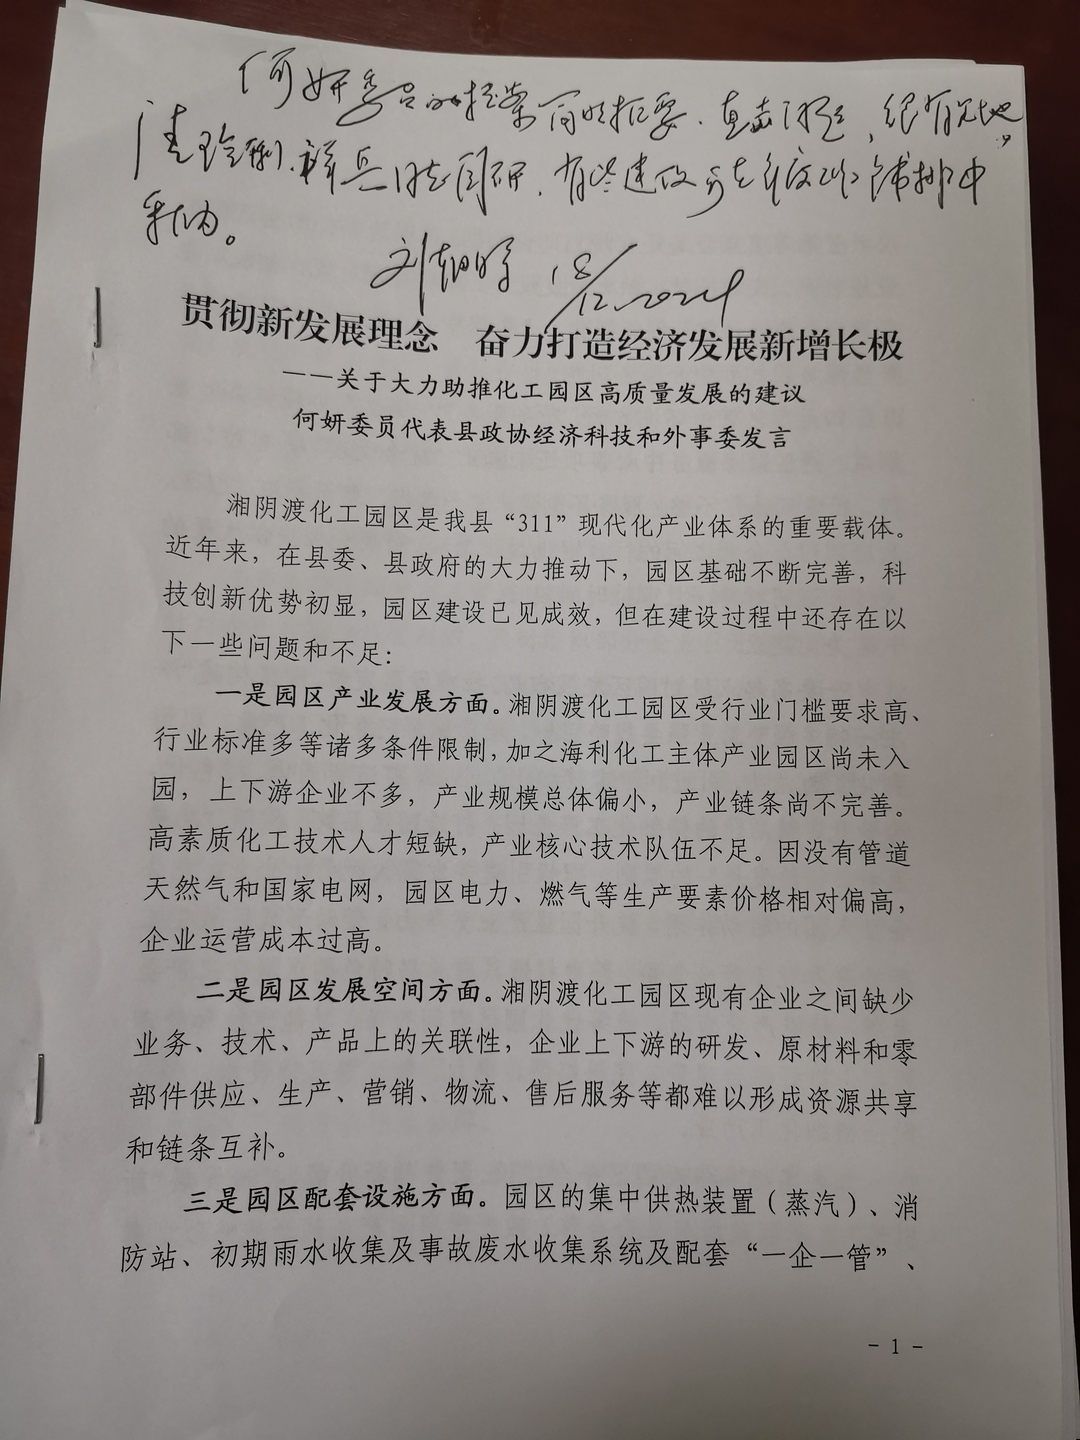 何妍委员的提案简明扼要、直击问题，很有见地，
请玲、祥兵同志阅研，有些建议可在年度工作铺排中
采纳。
18/12.2024
贯彻新发展理念 奋力打造经济发展新增长极
——关于大力助推化工园区高质量发展的建议
何妍委员代表县政协经济科技和外事委发言
湘阴渡化工园区是我县“311”现代化产业体系的重要载体。
近年来，在县委、县政府的大力推动下，园区基础不断完善，科
技创新优势初显，园区建设已见成效，但在建设过程中还存在以
下一些问题和不足：
一是园区产业发展方面。湘阴渡化工园区受行业门槛要求高、
行业标准多等诸多条件限制，加之海利化工主体产业园区尚未入
园，上下游企业不多，产业规模总体偏小，产业链条尚不完善。
高素质化工技术人才短缺，产业核心技术队伍不足。因没有管道
天然气和国家电网，园区电力、燃气等生产要素价格相对偏高，
企业运营成本过高。
二是园区发展空间方面。湘阴渡化工园区现有企业之间缺少
业务、技术、产品上的关联性，企业上下游的研发、原材料和零
部件供应、生产、营销、物流、售后服务等都难以形成资源共享
和链条互补。
三是园区配套设施方面。园区的集中供热装置（蒸汽）、消
防站、初期雨水收集及事故废水收集系统及配套“一企一管”、
- 1 -